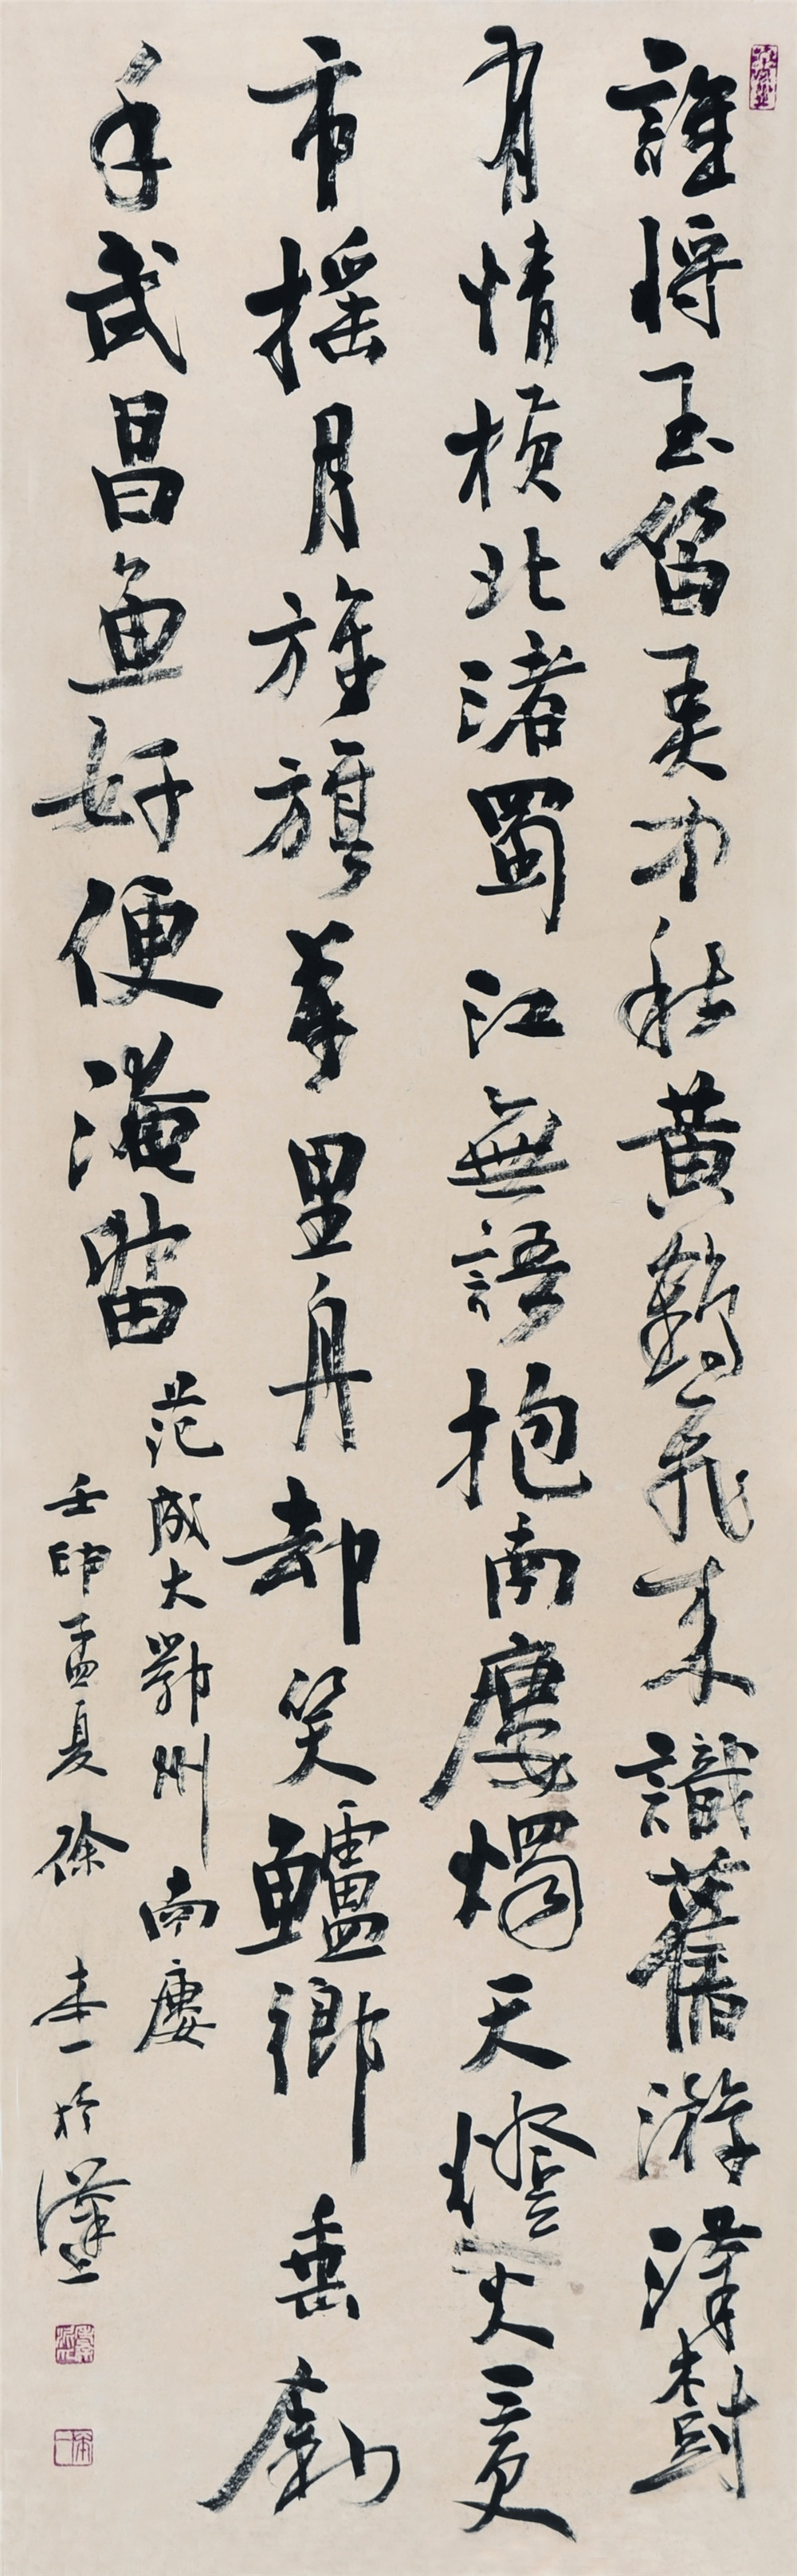 誰將玉笛弄中秋黃鶴飛來識舊游漢樹
有情横北渚蜀江無語抱南廔燭天燈火三更
市摇月旌旗萬里舟却笑鱸鄉垂釣
手武昌魚好便淹留
范成大鄂州南廔
壬申孟夏徐本一於漢上